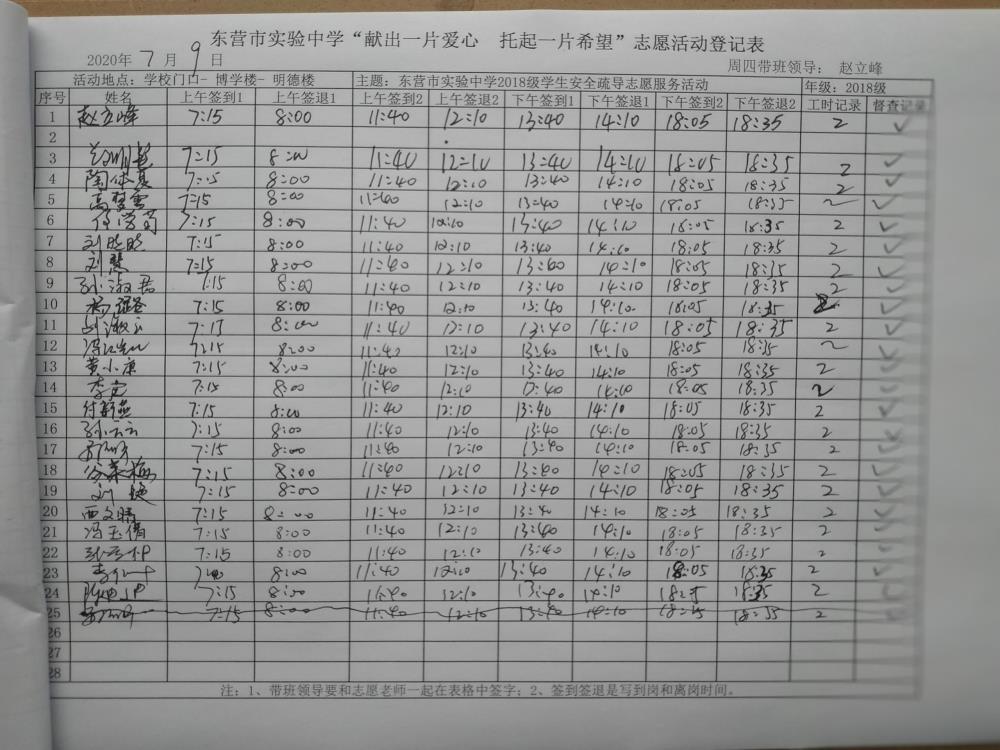 东营市实验中学“献出一片爱心 托起一片希望”志愿活动登记表
2020年 7 月 9 日 周四带班领导： 赵立峰
活动地点：学校门口- 博学楼- 明德楼 主题：东营市实验中学2018级学生安全疏导志愿服务活动 年级：2018级
序号 姓名 上午签到1 上午签退1 上午签到2 上午签退2 下午签到1 下午签退1 下午签到2 下午签退2 工时记录 督查记录
1 赵立峰 7:15 8:00 11:40 12:10 13:40 14:10 18:05 18:35 2 ✓
2
3 7:15 8:00 11:40 12:10 13:40 14:10 18:05 18:35 2 ✓
4 7:15 8:00 11:40 12:10 13:40 14:10 18:05 18:35 2 ✓
5 7:15 8:00 11:40 12:10 13:40 14:10 18:05 18:35 2 ✓
6 7:15 8:00 11:40 12:10 13:40 14:10 18:05 18:35 2 ✓
7 刘晓晓 7:15 8:00 11:40 12:10 13:40 14:10 18:05 18:35 2 ✓
8 刘慧 7:15 8:00 11:40 12:10 13:40 14:10 18:05 18:35 2 ✓
9 孙淑君 7:15 8:00 11:40 12:10 13:40 14:10 18:05 18:35 2 ✓
10 7:15 8:00 11:40 12:10 13:40 14:10 18:05 18:35 2 ✓
11 7:15 8:00 11:40 12:10 13:40 14:10 18:05 18:35 2 ✓
12 7:15 8:00 11:40 12:10 13:40 14:10 18:05 18:35 2 ✓
13 黄小康 7:15 8:00 11:40 12:10 13:40 14:10 18:05 18:35 2 ✓
14 7:15 8:00 11:40 12:10 13:40 14:10 18:05 18:35 2 ✓
15 7:15 8:00 11:40 12:10 13:40 14:10 18:05 18:35 2 ✓
16 孙云云 7:15 8:00 11:40 12:10 13:40 14:10 18:05 18:35 2 ✓
17 7:15 8:00 11:40 12:10 13:40 14:10 18:05 18:35 2 ✓
18 7:15 8:00 11:40 12:10 13:40 14:10 18:05 18:35 2 ✓
19 刘健 7:15 8:00 11:40 12:10 13:40 14:10 18:05 18:35 2 ✓
20 西文晴 7:15 8:00 11:40 12:10 13:40 14:10 18:05 18:35 2 ✓
21 冯玉倩 7:15 8:00 11:40 12:10 13:40 14:10 18:05 18:35 2 ✓
22 7:15 8:00 11:40 12:10 13:40 14:10 18:05 18:35 2 ✓
23 8:00 11:40 12:10 13:40 14:10 18:05 18:35 2 ✓
24 7:15 8:00 11:40 12:10 13:40 14:10 18:35 2 ✓
25 7:15 8:00 11:40 12:10 13:40 14:10 18:35 2
26
27
28
注：1、带班领导要和志愿老师一起在表格中签字；2、签到签退是写到岗和离岗时间。